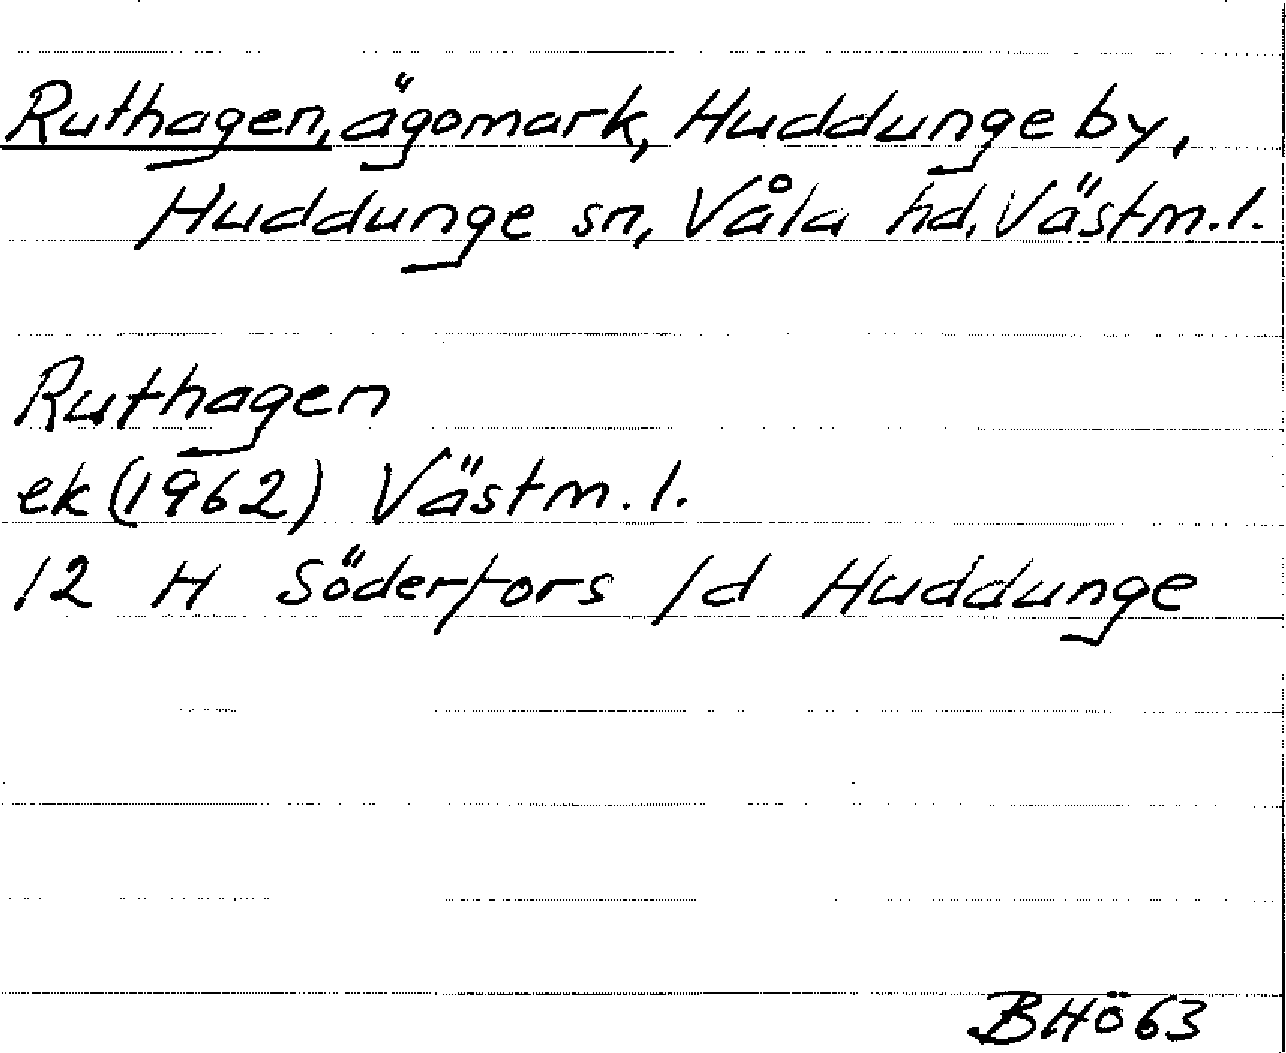 Ruthagen, ägomark, Huddunge by,
Huddunge sn, Våla hd, Västm.l.
Ruthagen
ek (1962) Västm.l.
12 H Söderfors 1d Huddunge
BHö63